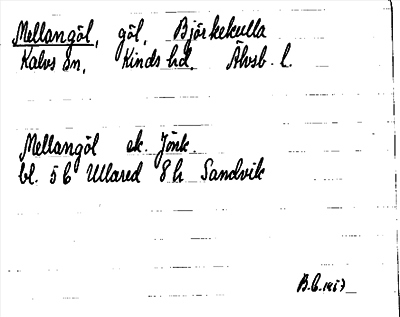 Mellangöl, göl, Björkekulla
Kalvs sn, Kinds hd. Älvsb. l.
Mellangöl ek. Jönk.
bl. 5 C Ullared 8 h Sandvik
B.C. 1967